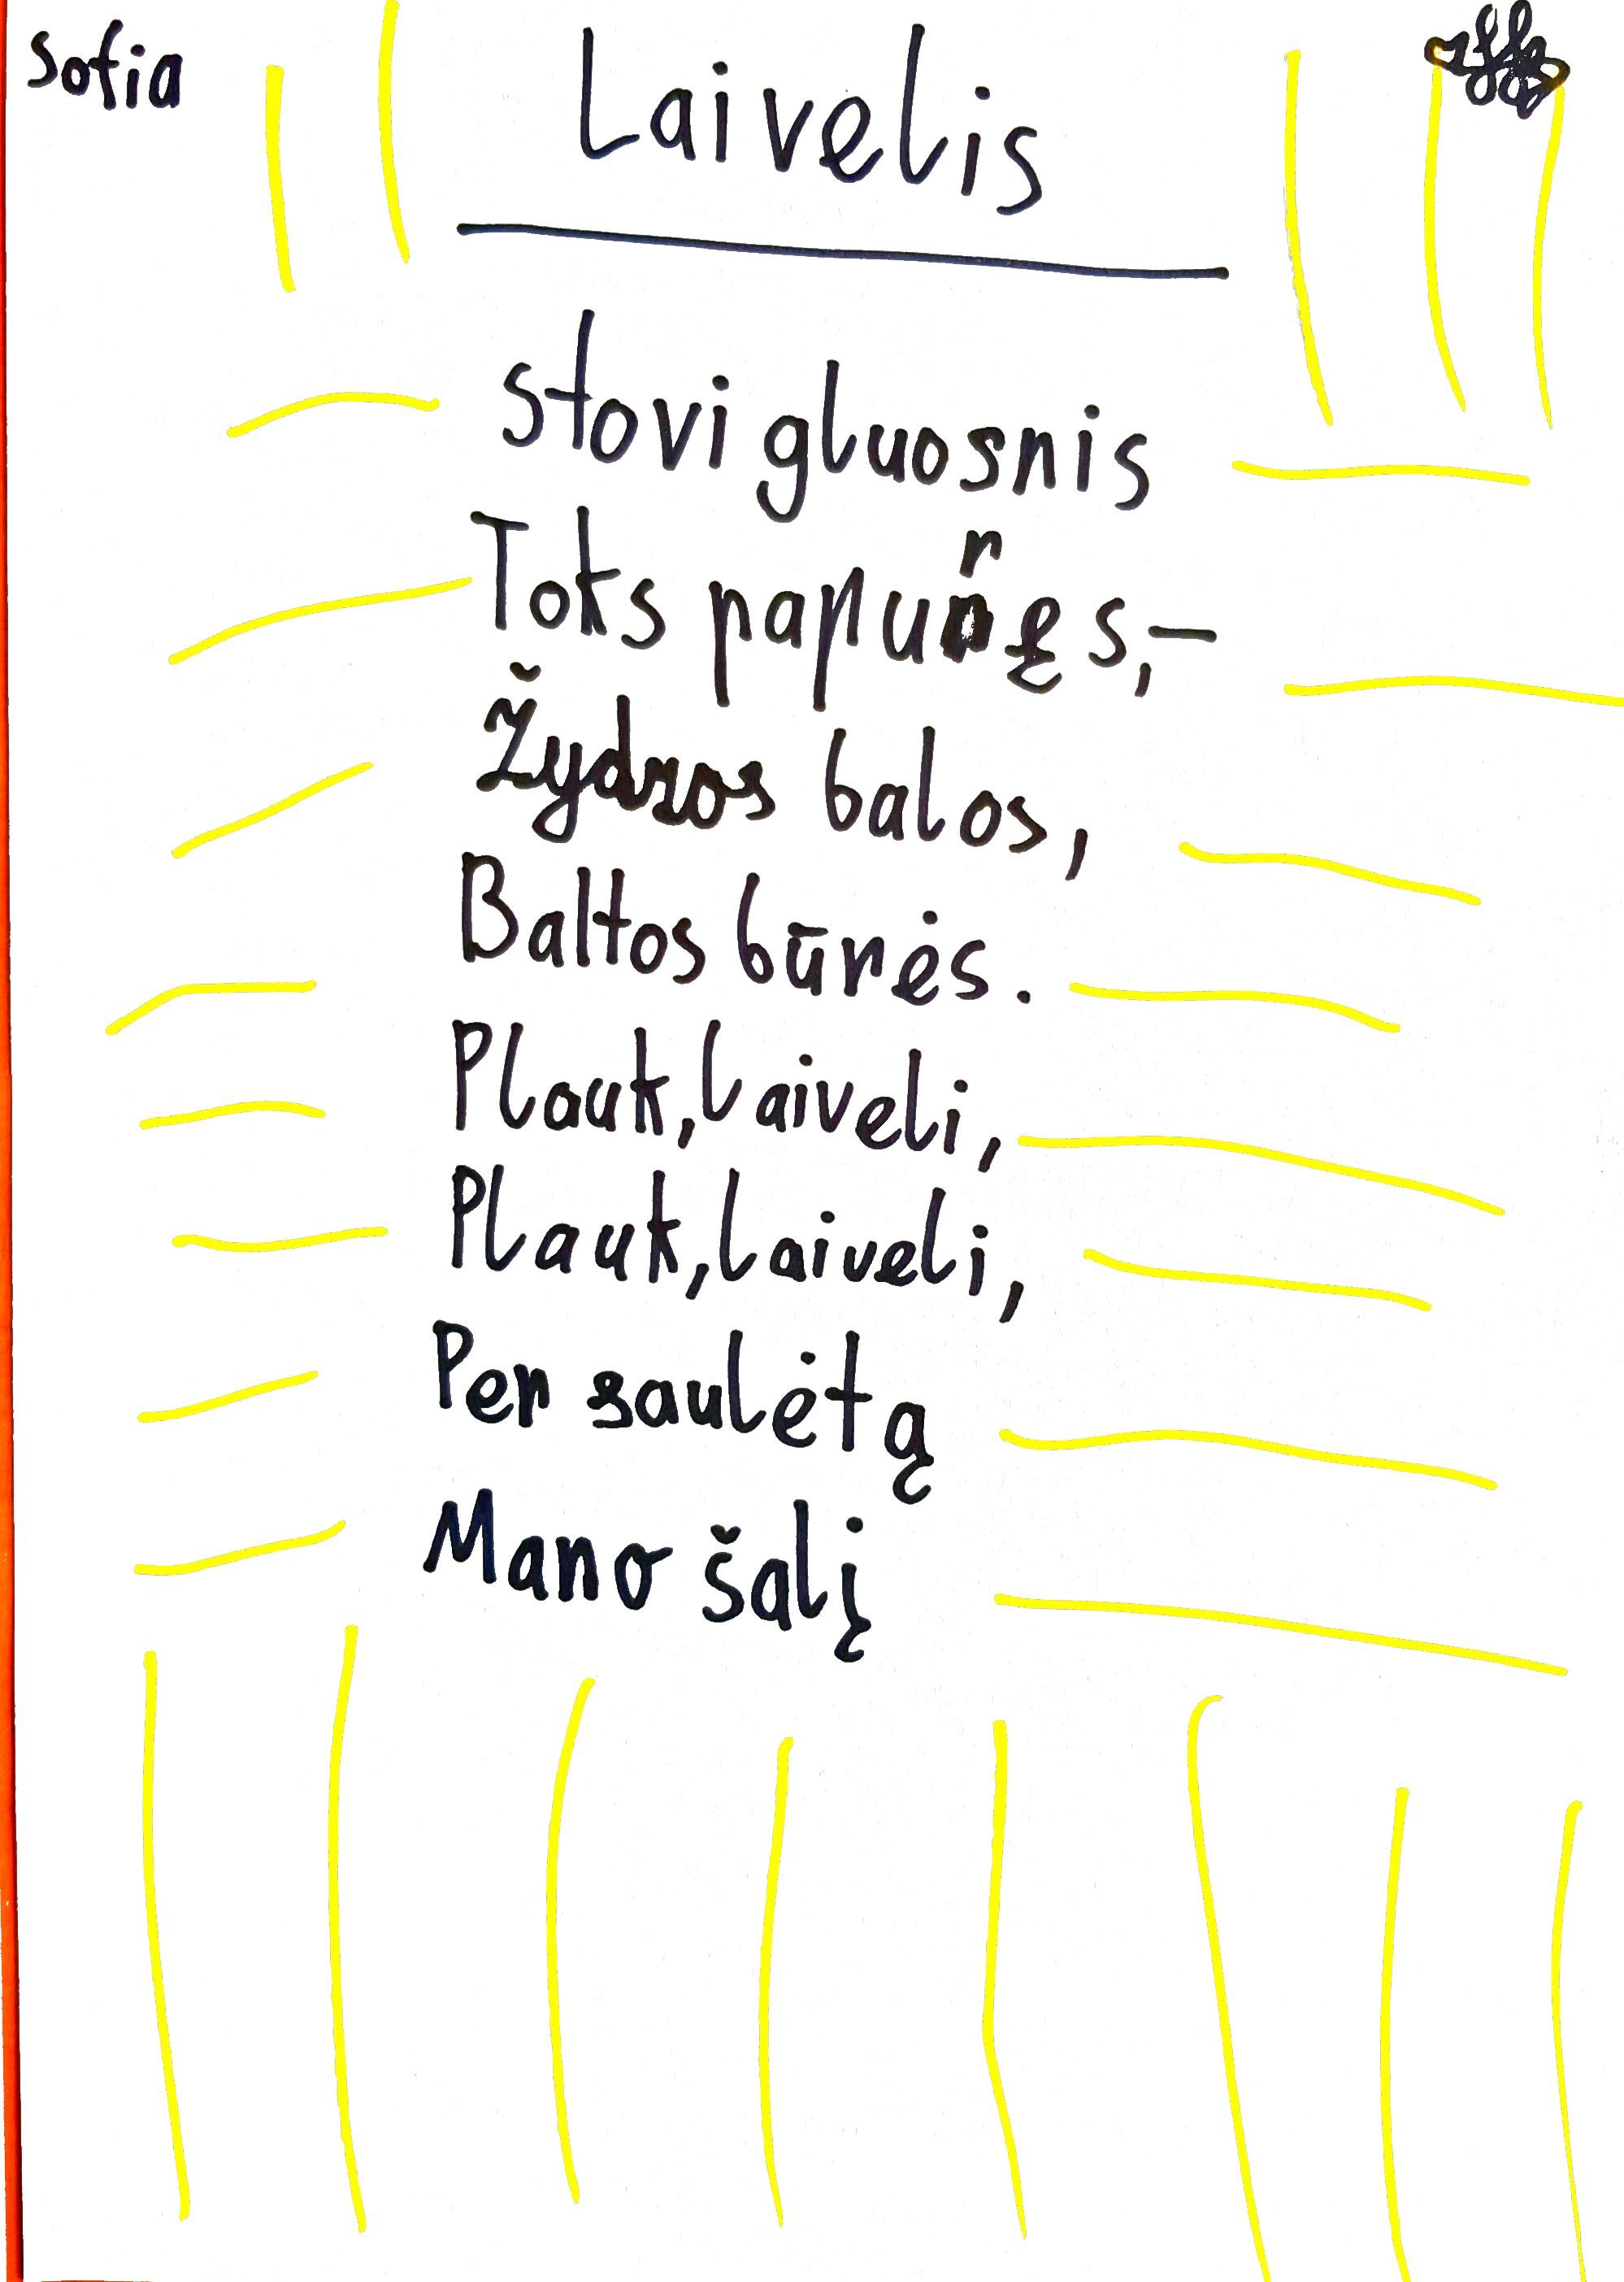 Sofia
Laivelis
Stovi gluosnis
Toks papuręs,–
Žydros balos,
Baltos būrės.
Plauk, laiveli,
Plauk, laiveli,
Per saulėtą
Mano šalį